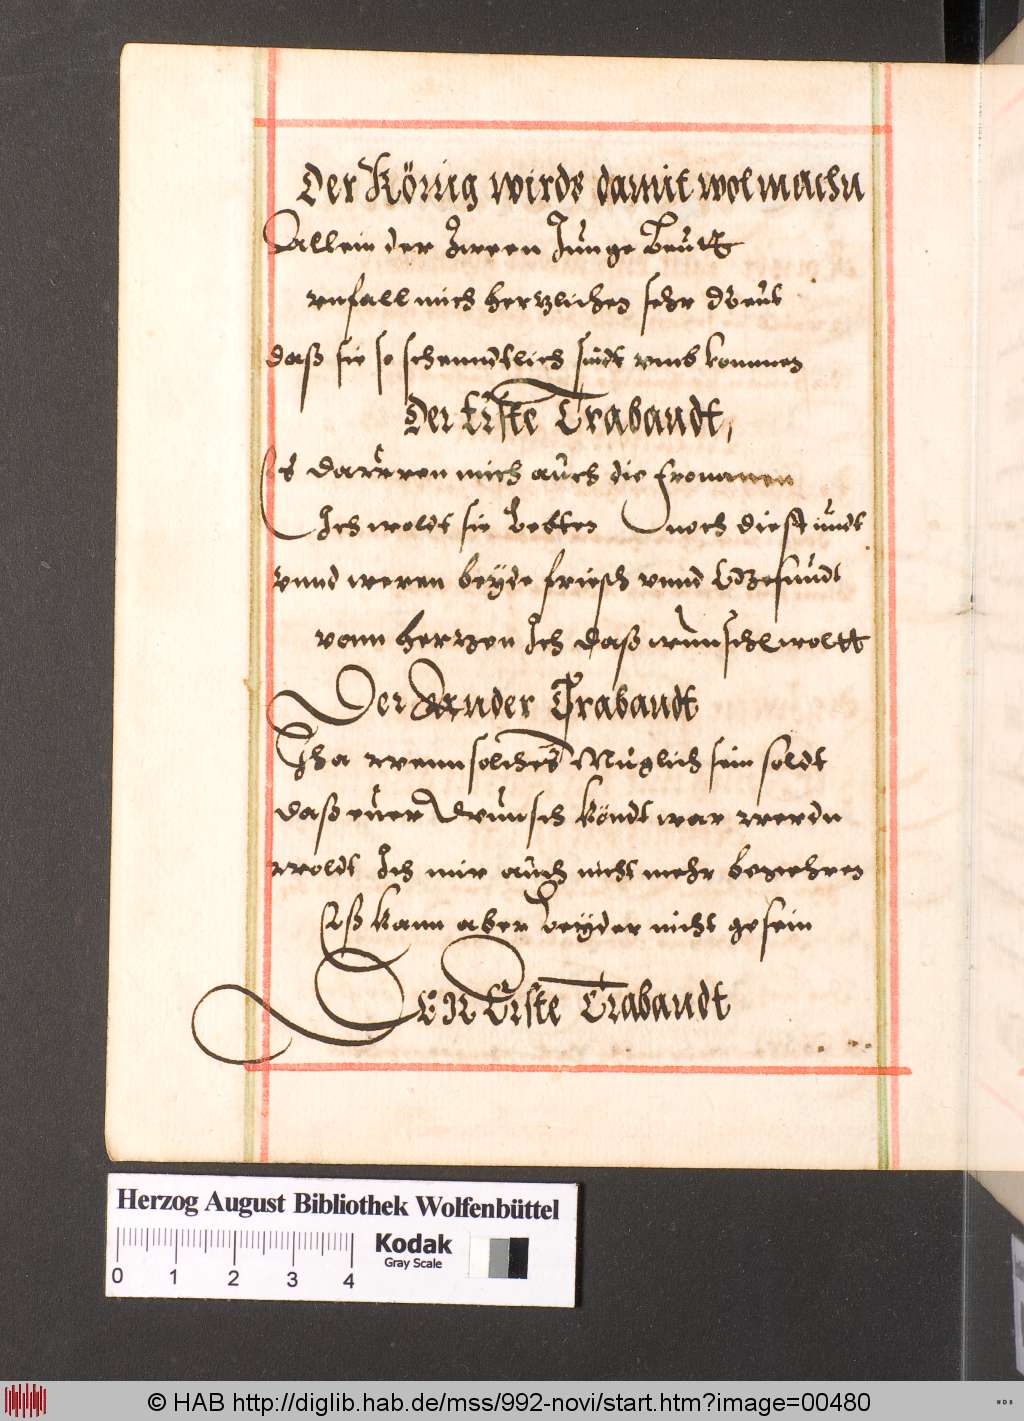 Der König wirds damit wol machn
Allein der Zween Junge Leutt
vnfall mich hertzlichen sehr
daß sie so schenndtlich sindt vmb kommen
Der Erste Trabandt,
Es mich auch die frommen
Ich woldt sie Lebten noch diestundt
vnnd weren beyde friesch vnnd Gesundt
vonn hertzen Ich daß wünschl woltt
Der Ander Trabandt
Jha wenn solches Müglich sein soldt
daß euer Wunsch köndt war werdn
woldt Ich mir auch nicht mehr begehren
Eß kann aber Leyder nicht gesein
DER Erste Trabandt
Herzog August Bibliothek Wolfenbüttel
Kodak
Gray Scale
0 1 2 3 4
© HAB http://diglib.hab.de/mss/992-novi/start.htm?image=00480